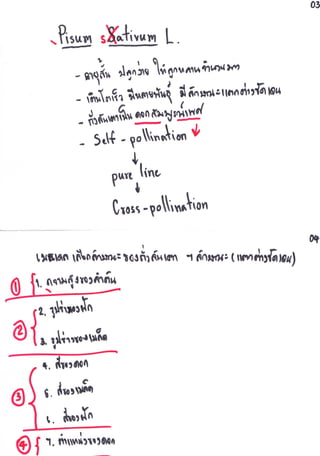 03
Pisum sativum L.
- อายุสั้น ปลูกง่าย ให้ลูกหลานจำนวนมาก
- เติบโตเร็ว มีหลายพันธุ์ มีลักษณะแตกต่างชัดเจน
- ถั่วลันเตาเป็น ดอกสมบูรณ์เพศ
- Self - pollination
pure line
Cross - pollination
04
เมนเดล เลือกลักษณะ ของถั่วลันเตา 7 ลักษณะ (แตกต่างชัดเจน)
① 1. ความสูงของลำต้น
② 2. รูปร่างของฝัก
3. รูปร่างของเมล็ด
4. สีของดอก
③ 5. สีของเมล็ด
6. สีของฝัก
④ 7. ตำแหน่งของดอก